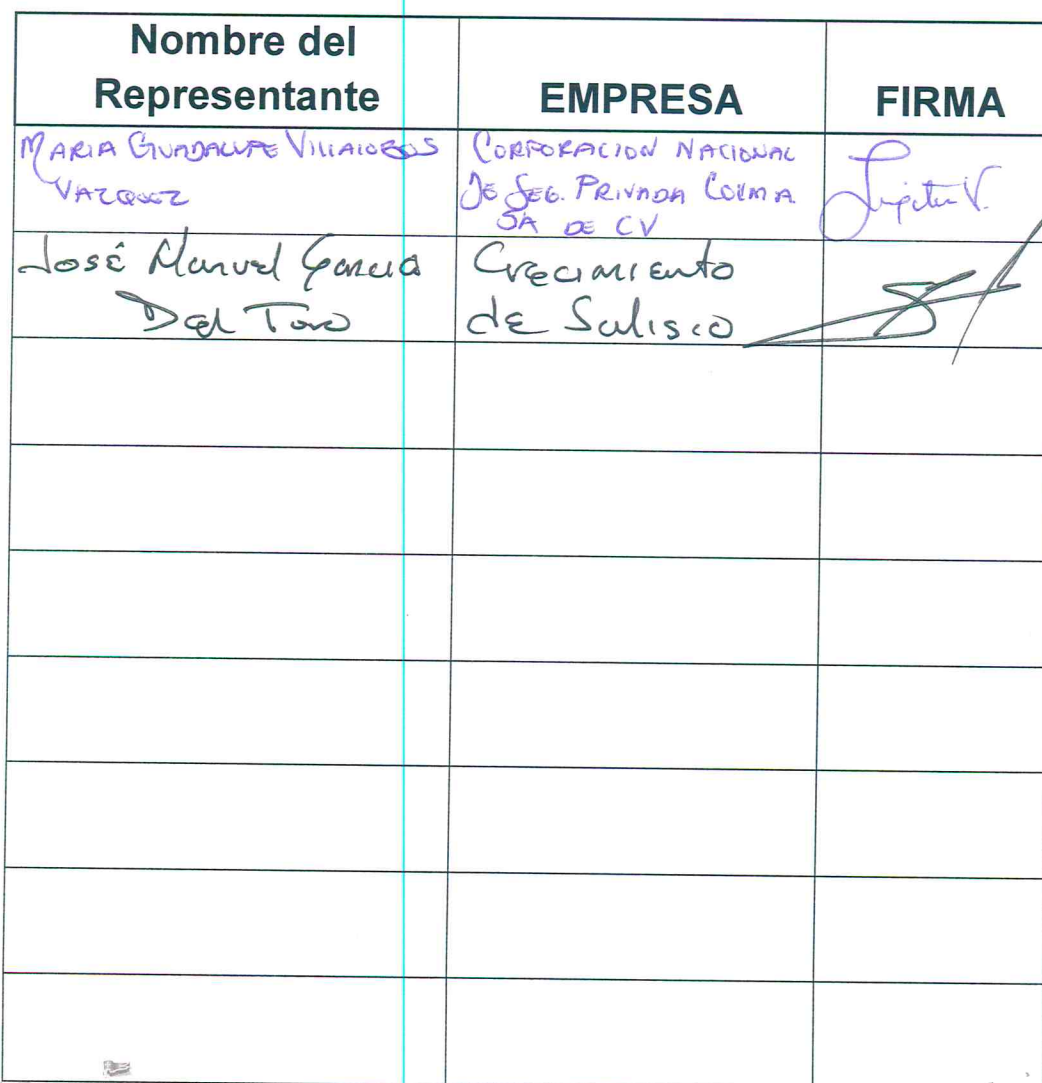 Nombre del
Representante
EMPRESA
FIRMA
MARIA GUADALUPE VILLALOBOS
VAZQUEZ
CORPORACION NACIONAL
DE SEG. PRIVADA COLIMA
SA DE CV
Lupita V.
José Manuel Garcia
Del Toro
Crecimiento
de Salisco